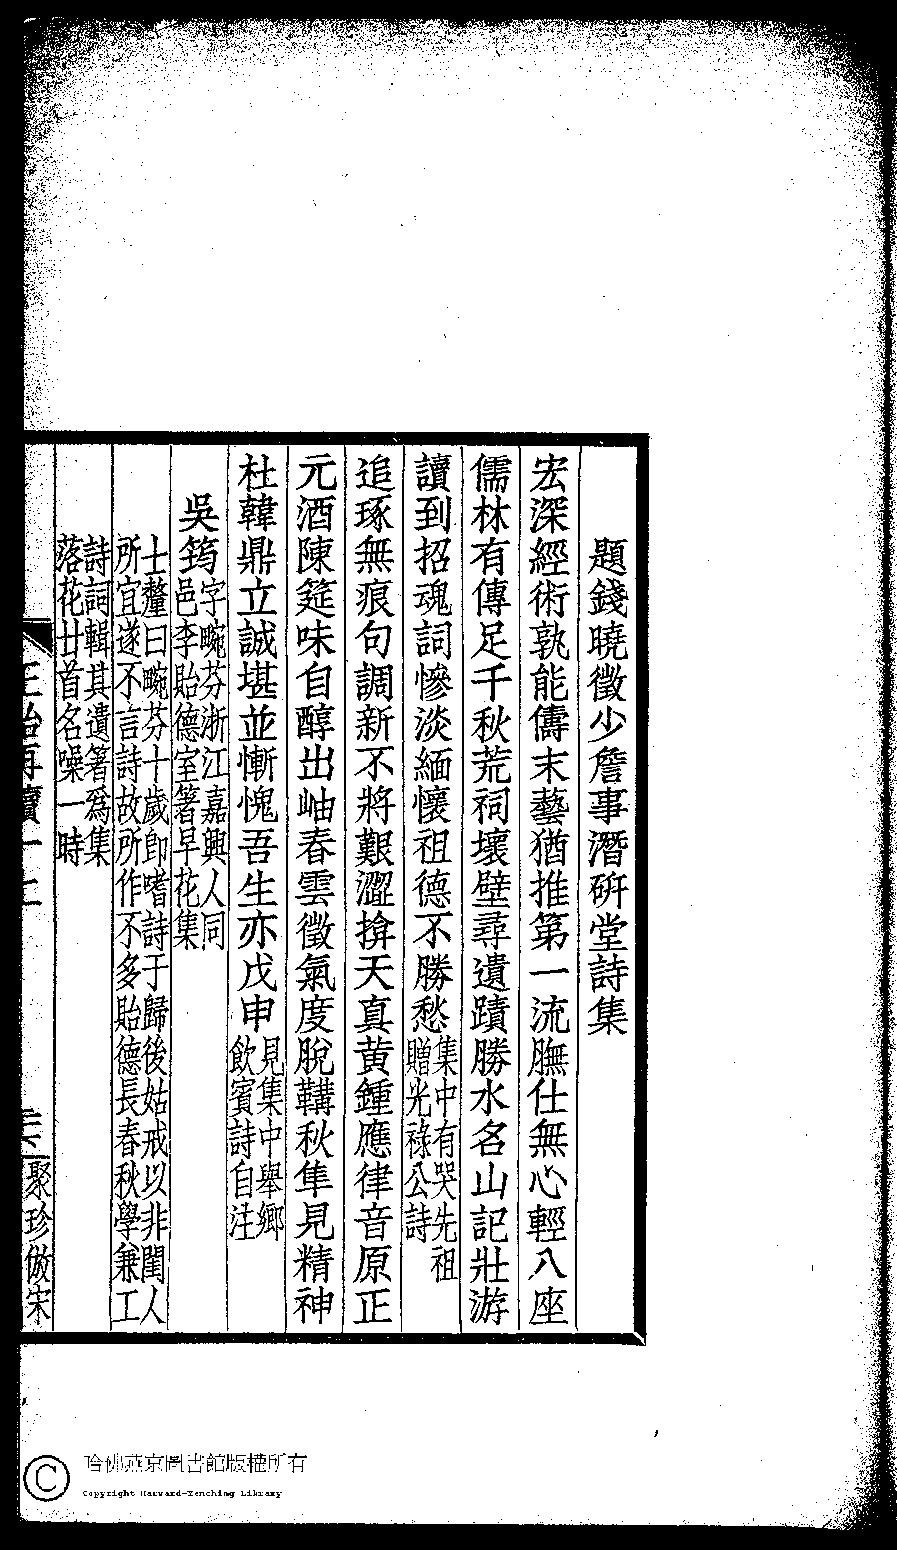 題錢曉徵少詹事潛硏堂詩集
宏深經術孰能儔末藝猶推第一流膴仕無心輕八座
儒林有傳足千秋荒祠壞壁尋遺蹟勝水名山記壯游
讀到招魂詞慘淡緬懷祖德不勝愁集中有哭先祖
贈光祿公詩
追琢無痕句調新不將艱澀揜天真黃鍾應律音原正
元酒陳筵味自醇出岫春雲徵氣度脫鞲秋隼見精神
杜韓鼎立誠堪並慚愧吾生亦戊申見集中舉鄉
飲賓詩自注
吳筠字畹芬浙江嘉興人同
邑李貽德室著早花集
士釐曰畹芬十歲卽嗜詩于歸後姑戒以非閨人
所宜遂不言詩故所作不多貽德長春秋學兼工
詩詞輯其遺著爲集
落花廿首名噪一時
聚珍倣宋
哈佛燕京圖書館版權所有
Copyright Harvard-Yenching Library